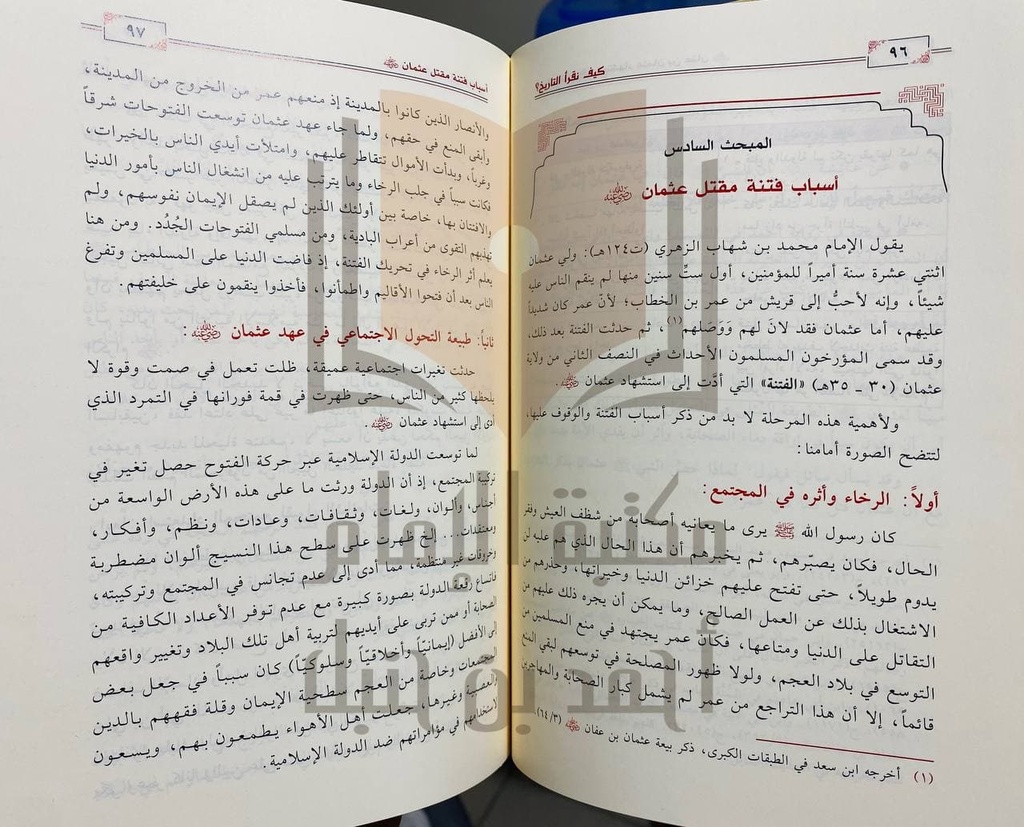 ٩٦
كيف نقرأ التاريخ؟
المبحث السادس
أسباب فتنة مقتل عثمان رضي الله عنه
يقول الإمام محمد بن شهاب الزهري (ت١٢٤هـ): ولي عثمان
اثنتي عشرة سنة أميراً للمؤمنين، أول ستِّ سنين منها لم ينقم الناس عليه
شيئاً، وإنه لأحبُّ إلى قريش من عمر بن الخطاب؛ لأنّ عمر كان شديداً
عليهم، أما عثمان فقد لانَ لهم وَوَصَلهم(١)، ثم حدثت الفتنة بعد ذلك،
وقد سمى المؤرخون المسلمون الأحداث في النصف الثاني من ولاية
عثمان (٣٠ ـ ٣٥هـ) «الفتنة» التي أدَّت إلى استشهاد عثمان رضي الله عنه.
ولأهمية هذه المرحلة لا بد من ذكر أسباب الفتنة والوقوف عليها،
لتتضح الصورة أمامنا:
أولاً: الرخاء وأثره في المجتمع:
كان رسول الله ﷺ يرى ما يعانيه أصحابه من شظف العيش وفقر
الحال، فكان يصبّرهم، ثم يخبرهم أن هذا الحال الذي هم عليه لن
يدوم طويلاً، حتى تفتح عليهم خزائن الدنيا وخيراتها، وحذّرهم من
الاشتغال بذلك عن العمل الصالح، وما يمكن أن يجره ذلك عليهم من
التقاتل على الدنيا ومتاعها، فكان عمر يجتهد في منع المسلمين من
التوسع في بلاد العجم، ولولا ظهور المصلحة في توسعهم لبقي المنع
قائماً، إلا أن هذا التراجع من عمر لم يشمل كبار الصحابة والمهاجرين
(١) أخرجه ابن سعد في الطبقات الكبرى، ذكر بيعة عثمان بن عفان رضي الله عنه (٦٤/٣)
٩٧
أسباب فتنة مقتل عثمان رضي الله عنه
والأنصار الذين كانوا بالمدينة إذ منعهم عمر من الخروج من المدينة،
وأبقى المنع في حقهم، ولما جاء عهد عثمان توسعت الفتوحات شرقاً
وغرباً، وبدأت الأموال تتقاطر عليهم، وامتلأت أيدي الناس بالخيرات،
فكانت سبباً في جلب الرخاء وما يترتب عليه من انشغال الناس بأمور الدنيا
والافتتان بها، خاصة بين أولئك الذين لم يصقل الإيمان نفوسهم، ولم
تهذبهم التقوى من أعراب البادية، ومن مسلمي الفتوحات الجُدُد. ومن هنا
يعلم أثر الرخاء في تحريك الفتنة، إذ فاضت الدنيا على المسلمين وتفرغ
الناس بعد أن فتحوا الأقاليم واطمأنوا، فأخذوا ينقمون على خليفتهم.
ثانياً: طبيعة التحول الاجتماعي في عهد عثمان رضي الله عنه:
حدثت تغيرات اجتماعية عميقة، ظلت تعمل في صمت وقوة لا
يلحظها كثير من الناس، حتى ظهرت في قمة فورانها في التمرد الذي
أدى إلى استشهاد عثمان رضي الله عنه.
لما توسعت الدولة الإسلامية عبر حركة الفتوح حصل تغير في
تركيبة المجتمع، إذ أن الدولة ورثت ما على هذه الأرض الواسعة من
أجناس، وألوان، ولغات، وثقافات، وعادات، ونظم، وأفكار،
ومعتقدات... إلخ ظهرت على سطح هذا النسيج ألوان مضطربة
وخروقات غير منتظمة، مما أدى إلى عدم تجانس في المجتمع وتركيبته،
فاتساع رقعة الدولة بصورة كبيرة مع عدم توفر الأعداد الكافية من
الصحابة أو ممن تربى على أيديهم لتربية أهل تلك البلاد وتغيير واقعهم
إلى الأفضل (إيمانيّاً وأخلاقيّاً وسلوكيّاً) كان سبباً في جعل بعض
المجتمعات وخاصة من العجم سطحية الإيمان وقلة فقههم بالدين
والعصبية وغيرها، جعلت أهل الأهواء يطمعون بهم، ويسعون
لاستخدامهم في مؤامراتهم ضد الدولة الإسلامية.
مكتبة الإمام
أحمد بن حنبل